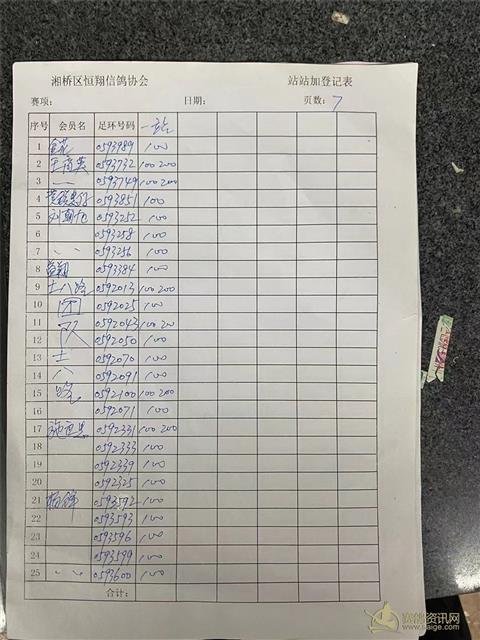 湘桥区恒翔信鸽协会 站站加登记表
赛项： 日期： 页数：7
序号 会员名 足环号码 一站
1 0593989 100
2 0593732 100 200
3 〃 0593749 100 200
4 0593851 100
5 0593252 100
6 0593258 100
7 〃 0593256 100
8 0593384 100
9 十八路 0592013 100 200
10 团 0592025 100
11 队 0592043 100 20
12 0592050 100
13 十 0592070 100
14 八 0592091 100
15 路 0592100 100 200
16 0592071 100
17 0592331 100 200
18 0592333 100
19 0592339 100
20 0592325 100
21 100
22 0593593 100
23 0593596 100
24 0593599 100
25 〃 0593600 100
合计：